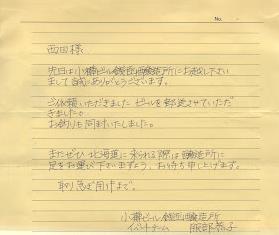 No.
西田様
先日は小樽ビール銭函醸造所にお越し下さい
まして誠にありがとうございます。
ご依頼いただきました ビールを郵送させていただ
きました。
お釣りも同封いたしました。
またぜひ北海道に来られる際は醸造所に
足をお運び下さいますよう、お待ち申し上げます。
取り急ぎ用件まで。
小樽ビール銭函醸造所
イベントチーム 服部恭子